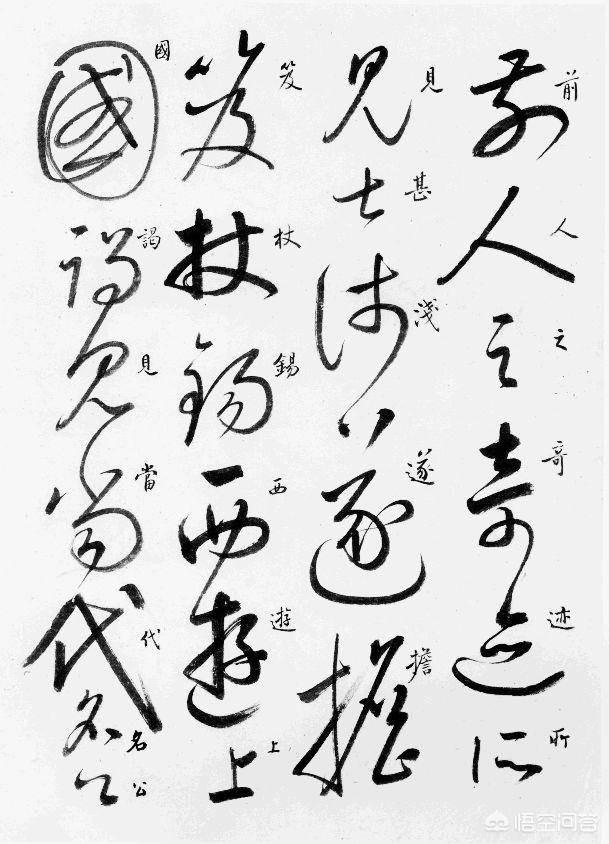 前人之奇迹所
前人之奇迹所
見甚淺遂擔
見甚淺遂擔
笈杖錫西遊上
笈杖錫西遊上
國謁見當代名公
國謁見當代名公
悟空问答